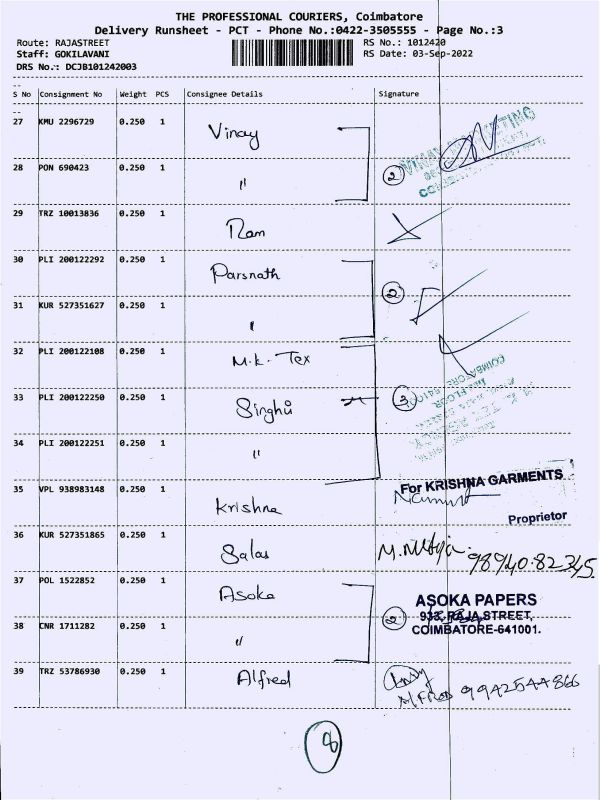 THE PROFESSIONAL COURIERS, Coimbatore
Delivery Runsheet - PCT - Phone No.:0422-3505555 - Page No.:3
Route: RAJASTREET RS No.: 1012420
Staff: GOKILAVANI RS Date: 03-Sep-2022
DRS No.: DCJB101242003
S No Consignment No Weight PCS Consignee Details Signature
27 KMU 2296729 0.250 1 Vinay
28 PON 690423 0.250 1 〃 2
29 TRZ 10013836 0.250 1 Ram
30 PLI 200122292 0.250 1 Parsnath
2
31 KUR 527351627 0.250 1 〃
32 PLI 200122108 0.250 1 M.K. Tex
33 PLI 200122250 0.250 1 Singhu 3
34 PLI 200122251 0.250 1 〃
For KRISHNA GARMENTS
35 VPL 938983148 0.250 1 Krishna
Proprietor
36 KUR 527351865 0.250 1 Salas 98940.82345.
37 POL 1522852 0.250 1 Asoka
ASOKA PAPERS
933, RAJA STREET,
COIMBATORE-641001.
38 CNR 1711282 0.250 1 〃 2
39 TRZ 53786930 0.250 1 Alfred
Alfred 9942544866
8